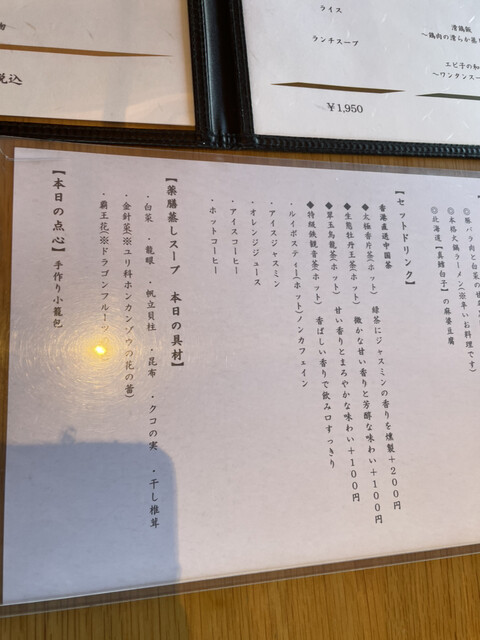 ライス
ランチスープ
￥1,950
滑鶏飯
～鶏肉の滑らか蒸
エビ子の和
～ワンタンスー
物
税込
◎豚バラ肉と白菜の
◎本格火鍋ラーメン(※辛いお料理です)
◎北海道【真鱈白子】の麻婆豆腐
【セットドリンク】
香港直送中国茶
◆太極香片茶(ホット) 緑茶にジャスミンの香りを燻製＋200円
◆生態牡丹王茶(ホット) 微かな甘い香りと芳醇な味わい＋100円
◆翠玉烏龍茶(ホット) 甘い香りとまろやかな味わい＋100円
◆特級鉄観音茶(ホット) 香ばしい香りで飲み口すっきり
・ルイボスティー(ホット)ノンカフェイン
・アイスジャスミン
・オレンジジュース
・アイスコーヒー
・ホットコーヒー
【薬膳蒸しスープ 本日の具材】
・白菜 ・龍眼 ・帆立貝柱 ・昆布 ・クコの実 ・干し椎茸
・金針菜(※ユリ科ホンカンゾウの花の蕾)
・覇王花(※ドラゴンフルーツ
【本日の点心】手作り小籠包